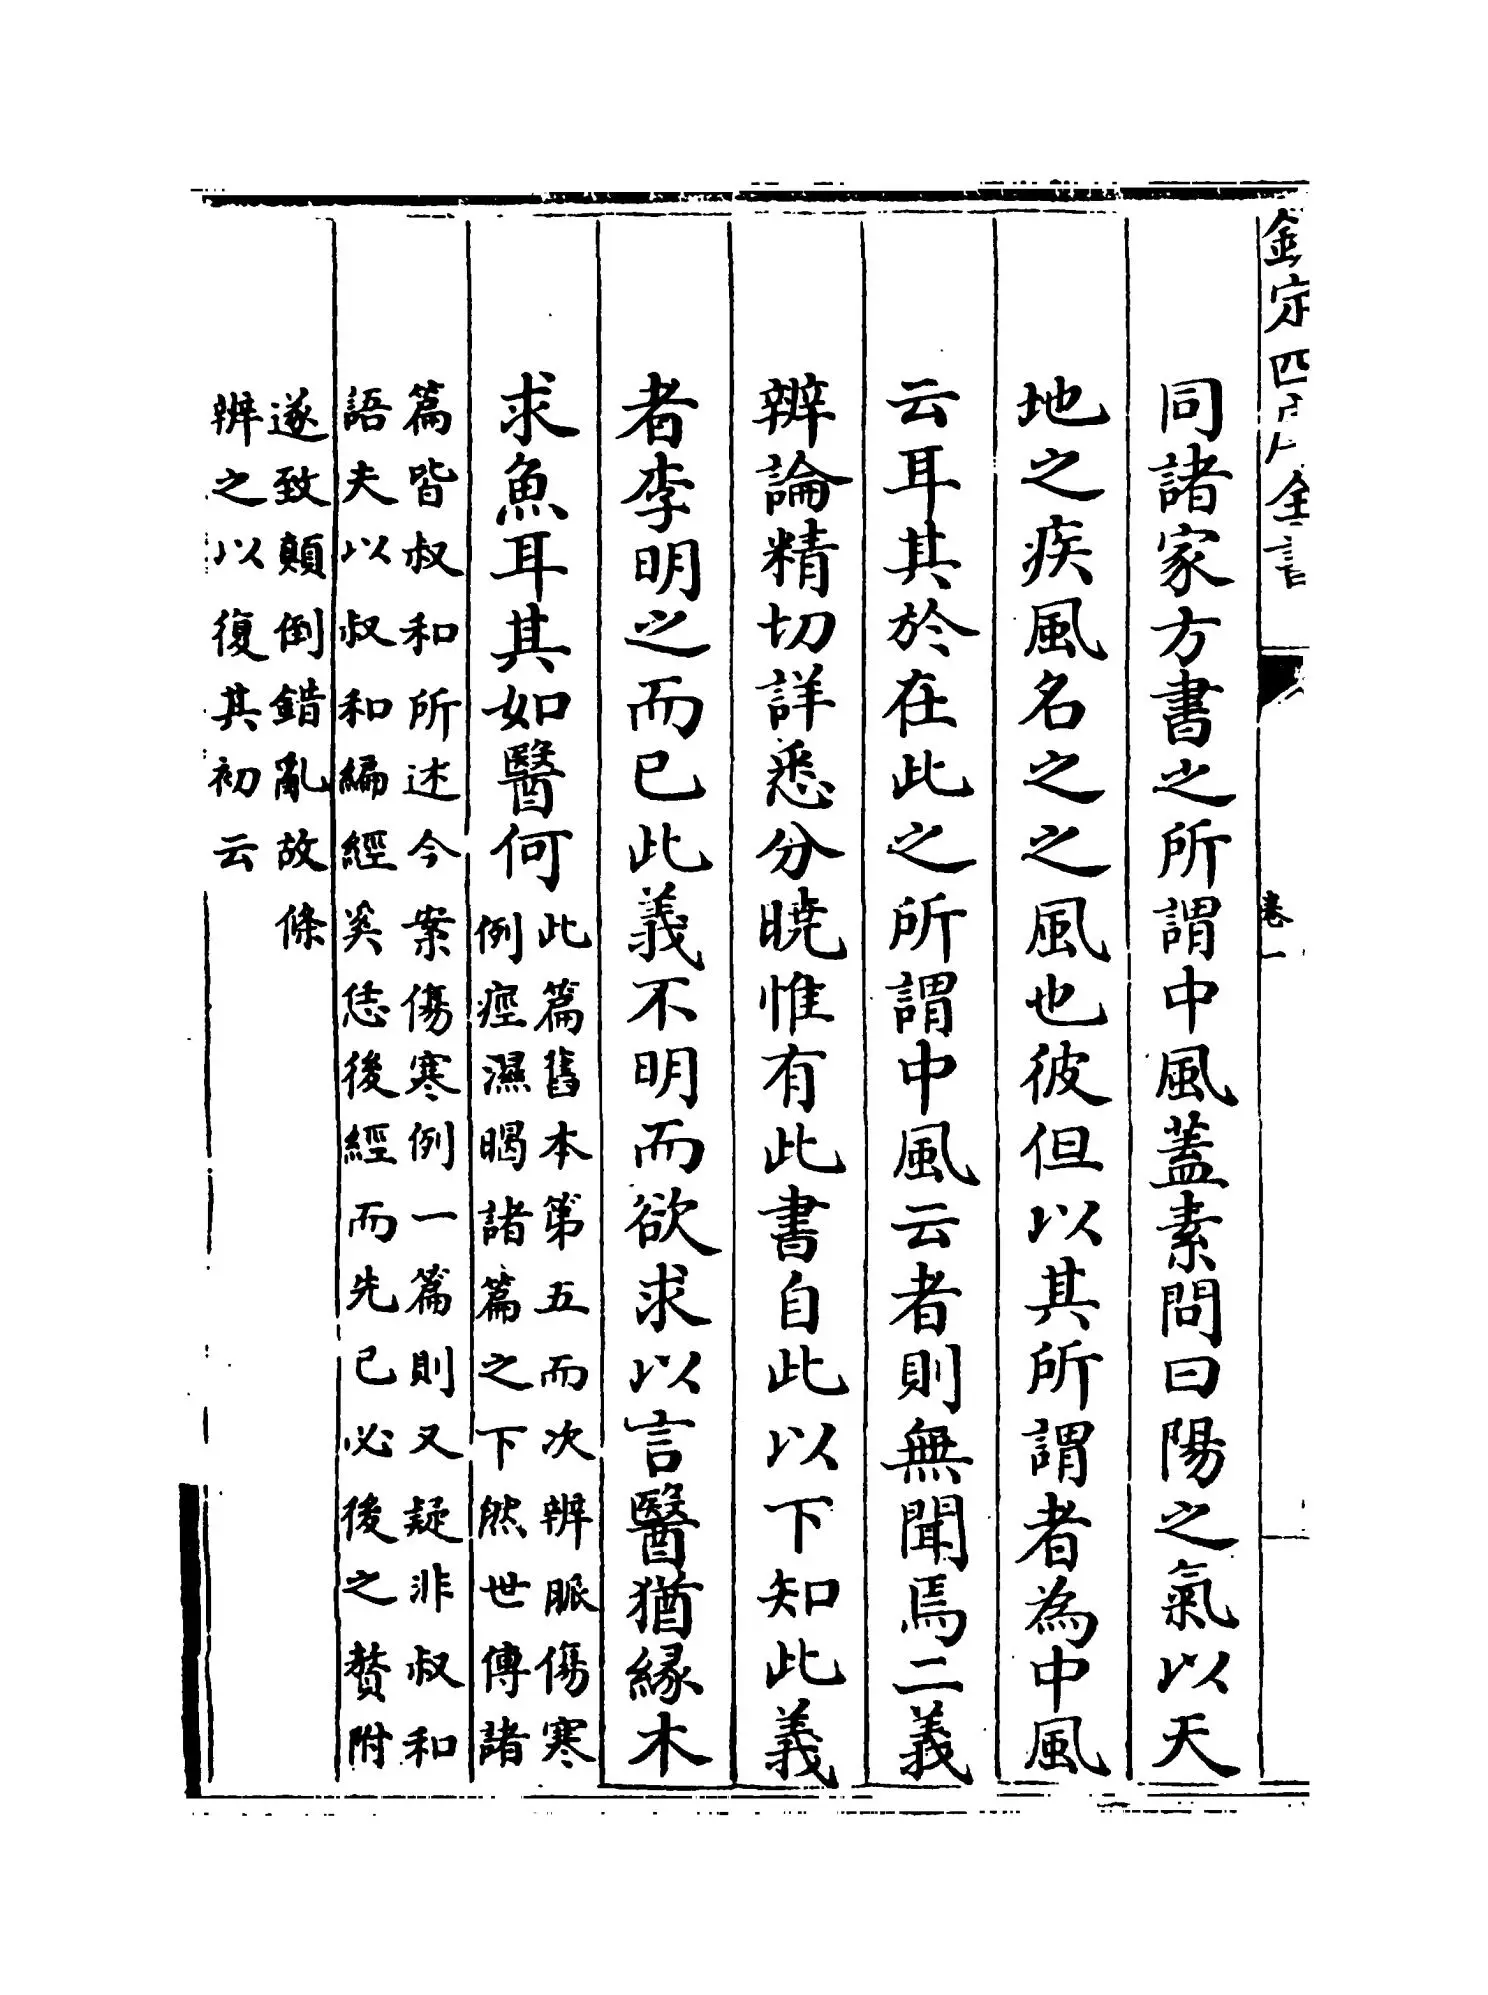 欽定四庫全書
卷一
同諸家方書之所謂中風蓋素問曰陽之氣以天
地之疾風名之之風也彼但以其所謂者為中風
云耳其於在此之所謂中風云者則無聞焉二義
辨論精切詳悉分曉惟有此書自此以下知此義
者李明之而已此義不明而欲求以言醫猶緣木
求魚耳其如醫何
此篇舊本第五而次辨脈傷寒
例痙濕暍諸篇之下然世傳諸
篇皆叔和所述今案傷寒例一篇則又疑非叔和
語夫以叔和編經奚恁後經而先己必後之贅附
遂致顛倒錯亂故條
辨之以復其初云